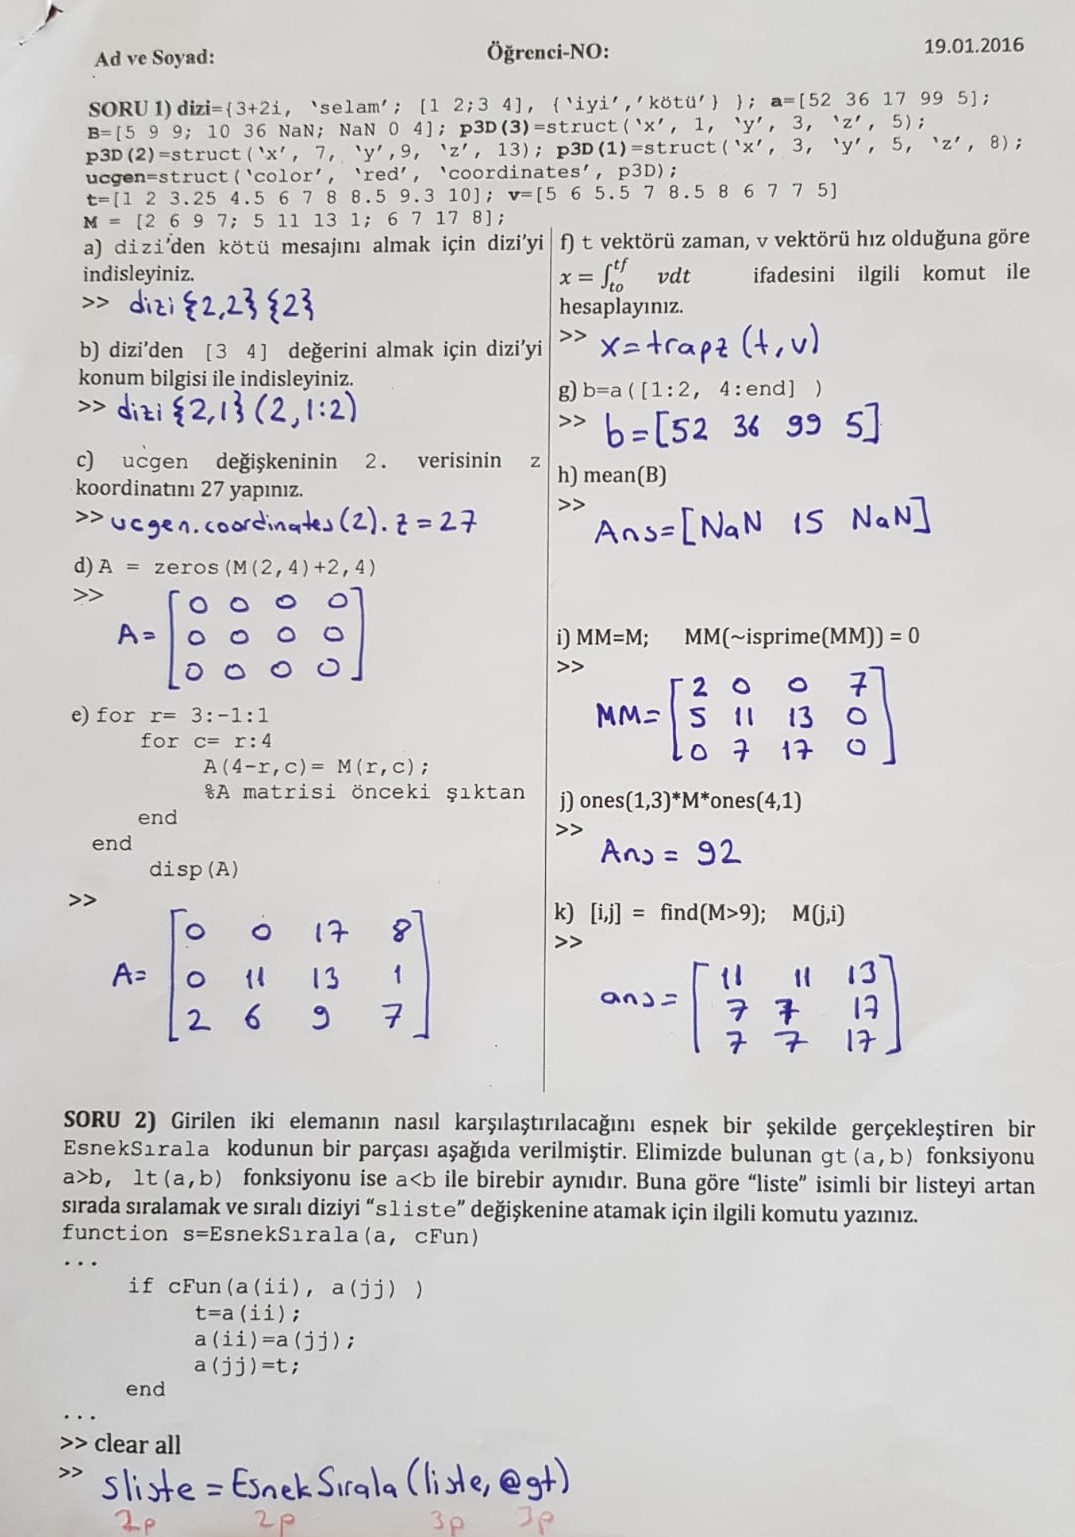 Ad ve Soyad: Öğrenci-NO: 19.01.2016
SORU 1) dizi={3+2i, ‘selam’; [1 2;3 4], {‘iyi’,’kötü’} }; a=[52 36 17 99 5];
B=[5 9 9; 10 36 NaN; NaN 0 4]; p3D(3)=struct(‘x’, 1, ‘y’, 3, ‘z’, 5);
p3D(2)=struct(‘x’, 7, ‘y’,9, ‘z’, 13); p3D(1)=struct(‘x’, 3, ‘y’, 5, ‘z’, 8);
ucgen=struct(‘color’, ‘red’, ‘coordinates’, p3D);
t=[1 2 3.25 4.5 6 7 8 8.5 9.3 10]; v=[5 6 5.5 7 8.5 8 6 7 7 5]
M = [2 6 9 7; 5 11 13 1; 6 7 17 8];
a) dizi’den kötü mesajını almak için dizi’yi
indisleyiniz.
>> dizi{2,2}{2}
b) dizi’den [3 4] değerini almak için dizi’yi
konum bilgisi ile indisleyiniz.
>> dizi{2,1}(2,1:2)
c) ucgen değişkeninin 2. verisinin z
koordinatını 27 yapınız.
>> ucgen.coordinates(2).z=27
d) A = zeros(M(2,4)+2,4)
>>
0 0 0 0
A= 0 0 0 0
0 0 0 0
e) for r= 3:-1:1
for c= r:4
A(4-r,c)= M(r,c);
%A matrisi önceki şıktan
end
end
disp(A)
>>
0 0 17 8
A= 0 11 13 1
2 6 9 7
f) t vektörü zaman, v vektörü hız olduğuna göre
x = ∫to^tf vdt ifadesini ilgili komut ile
hesaplayınız.
>> x=trapz(t,v)
g) b=a([1:2, 4:end] )
>> b=[52 36 99 5]
h) mean(B)
>>
Ans=[NaN 15 NaN]
i) MM=M; MM(~isprime(MM)) = 0
>>
2 0 0 7
MM= 5 11 13 0
0 7 17 0
j) ones(1,3)*M*ones(4,1)
>>
Ans = 92
k) [i,j] = find(M>9); M(j,i)
>>
11 11 13
ans= 7 7 17
7 7 17
SORU 2) Girilen iki elemanın nasıl karşılaştırılacağını esnek bir şekilde gerçekleştiren bir
EsnekSırala kodunun bir parçası aşağıda verilmiştir. Elimizde bulunan gt(a,b) fonksiyonu
a>b, lt(a,b) fonksiyonu ise a<b ile birebir aynıdır. Buna göre “liste” isimli bir listeyi artan
sırada sıralamak ve sıralı diziyi “sliste” değişkenine atamak için ilgili komutu yazınız.
function s=EsnekSırala(a, cFun)
...
if cFun(a(ii), a(jj) )
t=a(ii);
a(ii)=a(jj);
a(jj)=t;
end
...
>> clear all
>> sliste = EsnekSırala(liste, @gt)
2p 2p 3p 3p